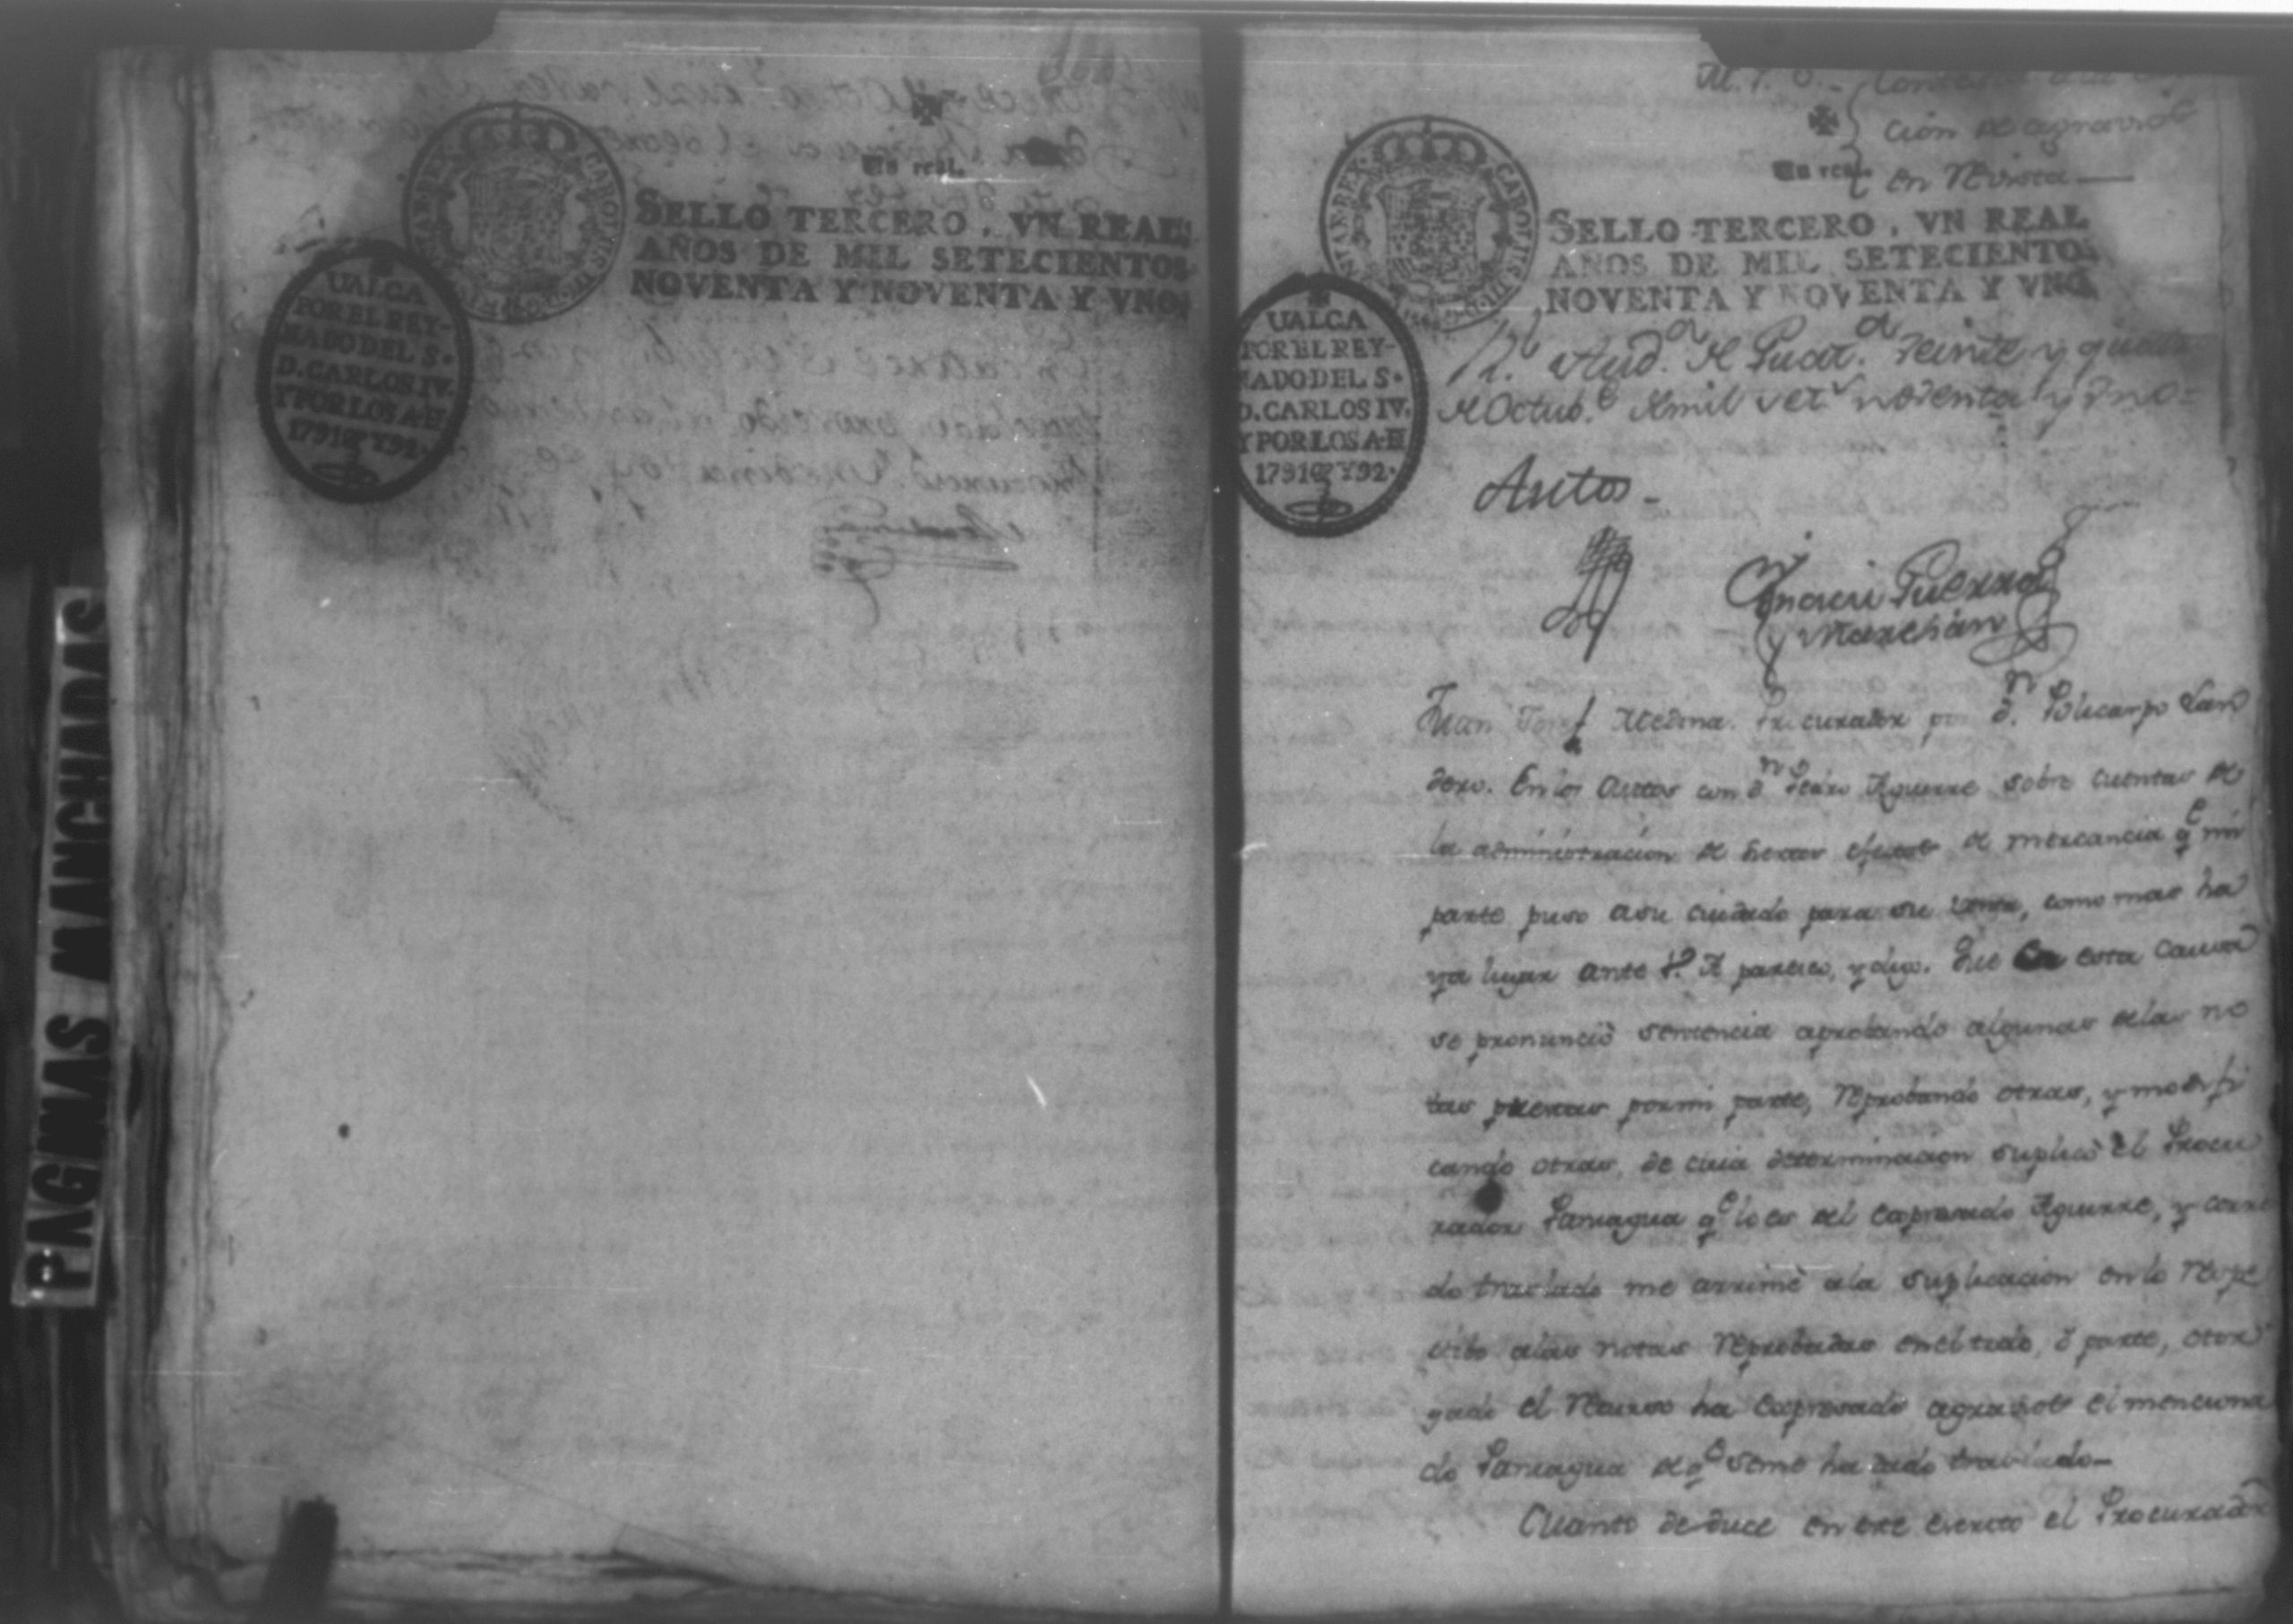 PAGINAS MANCHADAS
Un real.
SELLO TERCERO, VN REAL
AÑOS DE MIL SETECIENTOS
NOVENTA Y NOVENTA Y VNO
UALGA
POR EL REY-
NADO DEL S.
D. CARLOS IV.
Y POR LOS A
1791 Y 92.
M. P. S.
cion de agravios
en Revista
Un real
SELLO TERCERO, VN REAL
AÑOS DE MIL SETECIENTOS
NOVENTA Y NOVENTA Y VNO
UALGA
POR EL REY-
NADO DEL S.
D. CARLOS IV.
Y POR LOS A
1791 Y 92.
Rl. Audª. de Guatª. Veinte y quatro
de Octubᵉ. de mil setˢ noventa y uno=
Autos-
Guerra
y Marchán
Juan Josef Medina Procurador por dⁿ. Policarpo Lan
dero. En los Autos con dⁿ Pedro Aguirre sobre cuentas de
la administracion de efectos de mercancia qᵉ mi
parte puso a su cuidado para su venta, como mas ha
ya lugar ante V. A paresco, y digo. Que en esta causa
se pronunció sentencia aprobando algunas de las no
tas puestas por mi parte, Reprobando otras, y modifi
cando otras, de cuia determinacion suplicó el Procu
rador Paniagua qᵉ lo es del expresado Aguirre, y corri
do traslado me arrimé a la suplicacion en lo Respe
ctibo a las notas Reprobadas en el todo, ó parte, otor
gado el Recurso ha expresado agravios el menciona
do Paniagua de qᵉ se me ha dado traslado-
Quanto deduce en este escrito el Procurador